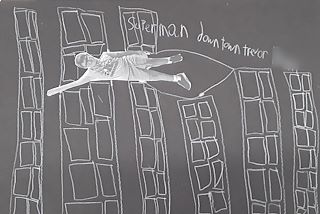 Superman downtown trevor